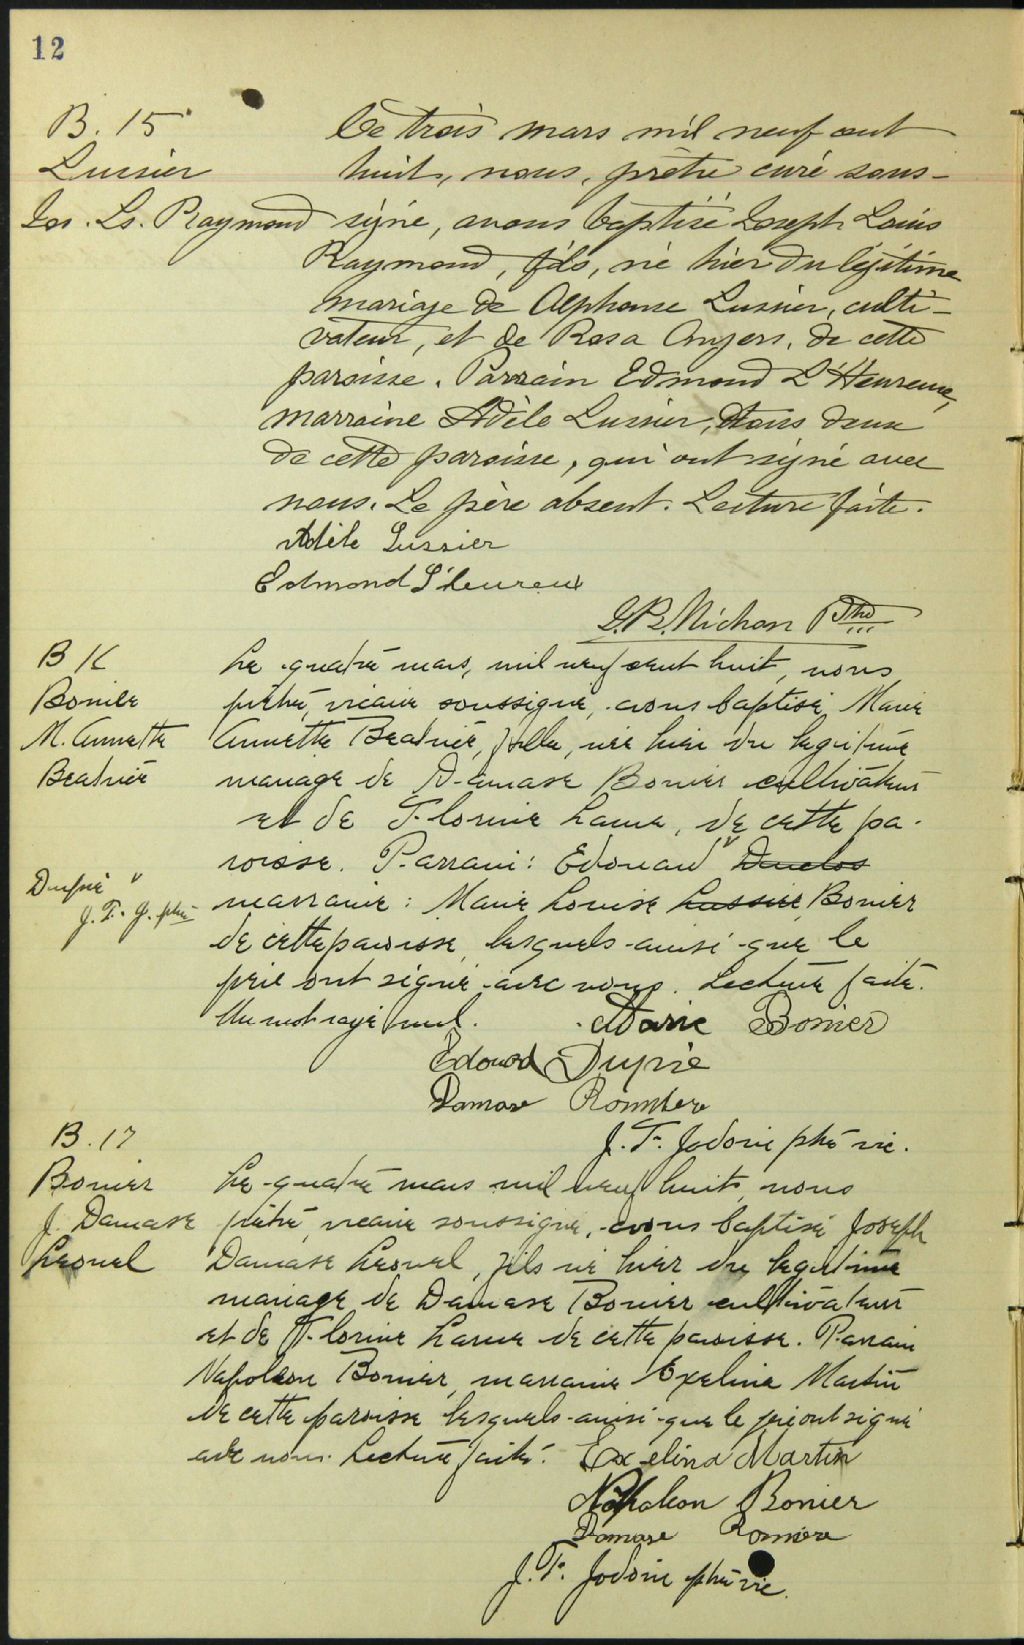 12
B. 15
Lussier
Jos. Ls. Raymond
Ce trois mars mil neuf cent
huit, nous, prêtre curé sous-
signé, avons baptisé Joseph Louis
Raymond, fils, né hier du légitime
mariage de Alphonse Lussier, culti-
vateur, et de Rosa Angers, de cette
paroisse. Parrain Edmond L'Heureux,
marraine Adèle Lussier, tous deux
de cette paroisse, qui ont signé avec
nous. Le père absent. Lecture faite.
Adèle Lussier
Edmond L'heureux
Michon Ptre
B 16
Bonier
M. Annette
Beatrice
Le quatre mars, mil neuf cent huit, nous
prêtre, vicaire soussigné, avons baptisé Marie
Annette Beatrice, fille, née hier du legitime
mariage de Damase Bonier cultivateur
et de Florine Larue, de cette pa-
roisse. Parrain: Edouard " Duclos
Dupré "
J. F. J. ptre
marraine: Marie Louise Lussier Bonier
de cette paroisse, lesquels ainsi que le
père ont signé avec nous. Lecture faite.
Un mot rayé nul. Marie Bonier
Edouard Dupré
Damase
J. F. Jodoin ptre vic.
B. 17
Bonier
J. Damase
Leonel
Le quatre mars mil neuf huit, nous
prêtre, vicaire soussigné, avons baptisé Joseph
Damase Leonel, fils né hier du legitime
mariage de Damase Bonier cultivateur
et de Florine Larue de cette paroisse. Parrain
Napoléon Bonier, marraine Exelina Martin
de cette paroisse lesquels ainsi que le père ont signé
avec nous. Lecture faite. Exelina Martin
Napoleon Bonier
Damase
J. F. Jodoin ptre vic.